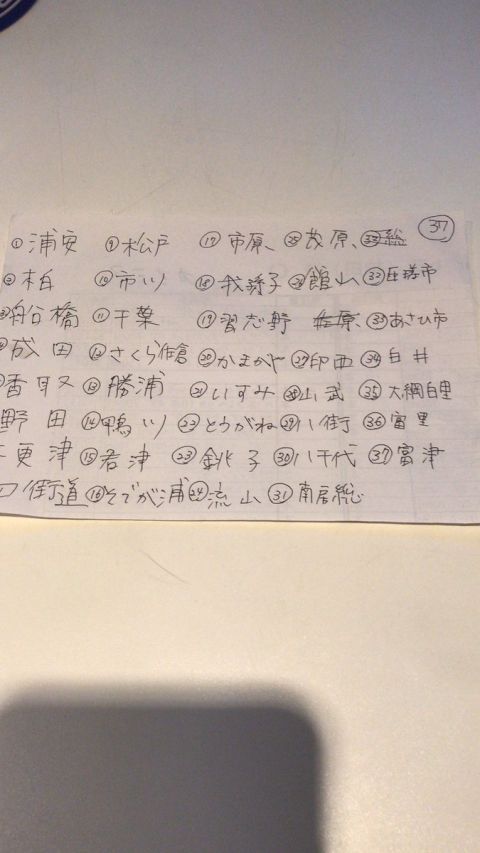 ㊲
①浦安 ⑨松戸 ⑰市原、㉕茂原、㉜総
②柏 ⑩市川 ⑱我孫子 ㉖館山 ㉜匝瑳市
船橋 ⑪千葉 ⑲習志野 佐原、㉝あさひ市
成田 ⑫さくら佐倉 ⑳かまがや ㉗印西 ㉞白井
香取 ⑬勝浦 ㉑いすみ ㉘山武 ㉟大網白里
野田 ⑭鴨川 ㉒とうがね ㉙八街 ㊱富里
更津 ⑮君津 ㉓銚子 ㉚八千代 ㊲富津
街道 ⑯そでが浦 ㉔流山 ㉛南房総